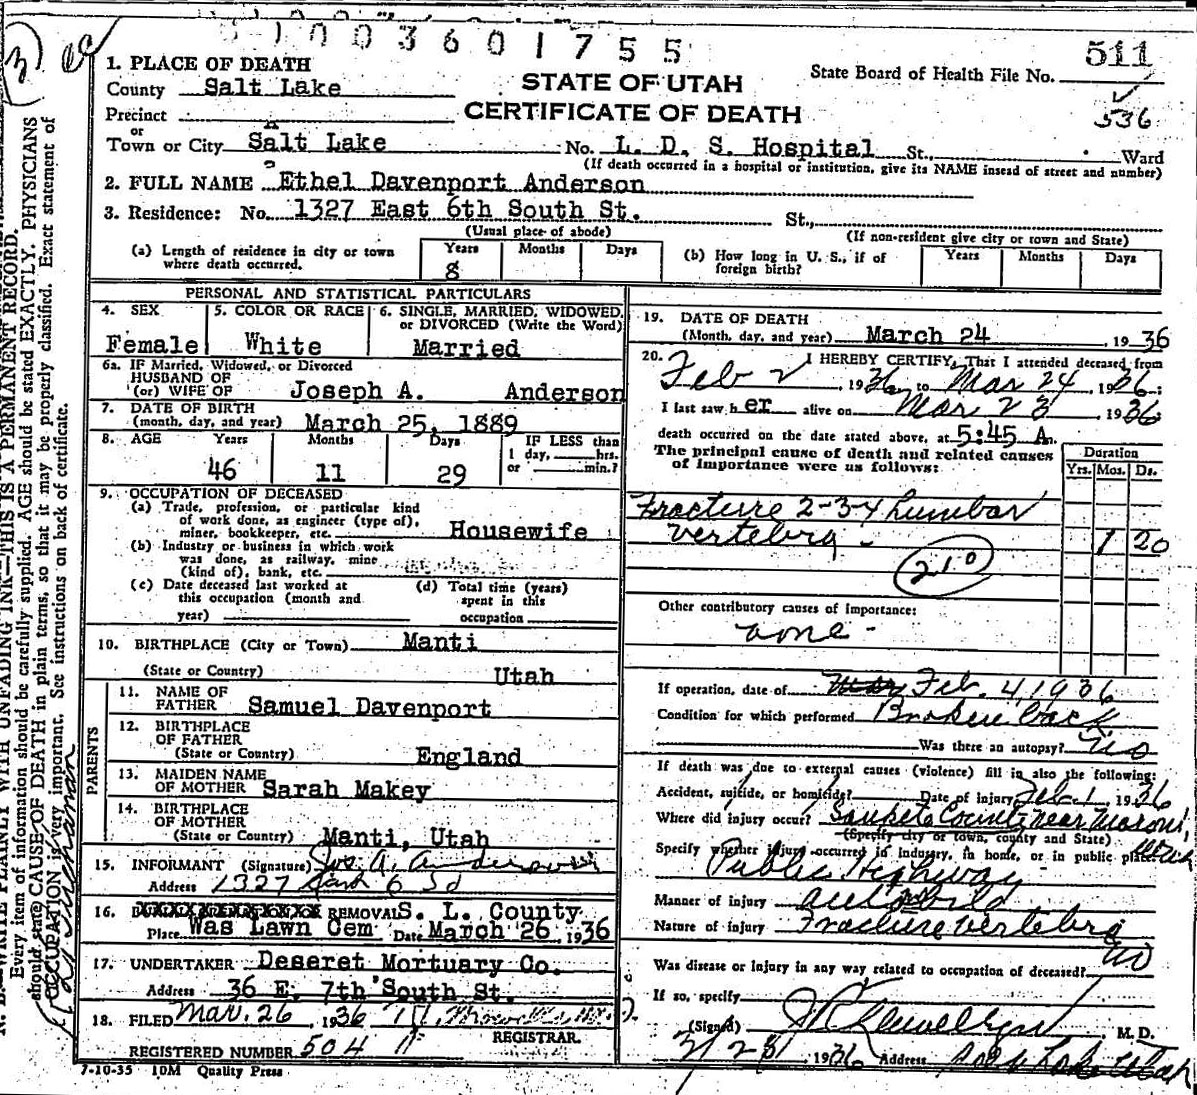 21003601755
511
1. PLACE OF DEATH
STATE OF UTAH
State Board of Health File No.
County Salt Lake
CERTIFICATE OF DEATH
536
Precinct
or
Town or City Salt Lake No. L. D. S. Hospital St., Ward
(If death occurred in a hospital or institution, give its NAME insead of street and number)
2. FULL NAME Ethel Davenport Anderson
3. Residence: No. 1327 East 6th South St. St.,
(Usual place of abode)
(If non-resident give city or town and State)
(a) Length of residence in city or town where death occurred.
Years Months Days
8
(b) How long in U. S., if of foreign birth?
Years Months Days
PERSONAL AND STATISTICAL PARTICULARS
4. SEX 5. COLOR OR RACE 6. SINGLE, MARRIED, WIDOWED, or DIVORCED (Write the Word)
Female White Married
6a. IF Married, Widowed, or Divorced
HUSBAND OF
(or) WIFE OF Joseph A. Anderson
7. DATE OF BIRTH
(month, day, and year) March 25, 1889
8. AGE Years Months Days IF LESS than
1 day, hrs.
or min.?
46 11 29
9. OCCUPATION OF DECEASED
(a) Trade, profession, or particular kind
of work done, as engineer (type of),
miner, bookkeeper, etc. Housewife
(b) Industry or business in which work
was done, as railway, mine
(kind of), bank, etc.
(c) Date deceased last worked at
this occupation (month and
year)
(d) Total time (years)
spent in this
occupation
10. BIRTHPLACE (City or Town) Manti
(State or Country) Utah
PARENTS
11. NAME OF
FATHER Samuel Davenport
12. BIRTHPLACE
OF FATHER
(State or Country) England
13. MAIDEN NAME
OF MOTHER Sarah Makey
14. BIRTHPLACE
OF MOTHER
(State or Country) Manti, Utah
15. INFORMANT (Signature) Jos. A. Anderson
Address 1327 East 6 So
16. REMOVAL S. L. County
Place Was Lawn Cem Date March 26, 1936
17. UNDERTAKER Deseret Mortuary Co.
Address 36 E. 7th South St.
18. FILED Mar. 26 1936
REGISTRAR.
REGISTERED NUMBER 504
7-10-35 10M Quality Press
19. DATE OF DEATH
(Month, day, and year) March 24, 1936
20. I HEREBY CERTIFY, That I attended deceased from
Feb 2, 1936, to Mar 24, 1936;
I last saw her alive on Mar 23 1936
death occurred on the date stated above, at 5:45 A.m.
The principal cause of death and related causes
of importance were as follows:
Duration
Yrs. Mos. Ds.
Fracture 2-3-4 Lumbar
Vertebra - 1 20
210
Other contributory causes of importance:
none -
If operation, date of Feb. 4, 1936
Condition for which performed Broken back
Was there an autopsy? no
If death was due to external causes (violence) fill in also the following:
Accident, suicide, or homicide? Date of injury Feb 1, 1936
Where did injury occur? Sanpete County near Moroni, Utah
(Specify city or town, county and State)
Specify whether injury occurred in Industry, in home, or in public place.
Public Highway
Manner of injury automobile
Nature of injury Fracture vertebra
Was disease or injury in any way related to occupation of deceased? no
If so, specify
(Signed) Llewellyn M. D.
1936 Address Salt Lake Utah
N. B.—WRITE PLAINLY WITH UNFADING INK—THIS IS A PERMANENT RECORD.
Every item of information should be carefully supplied. AGE should be stated EXACTLY. PHYSICIANS
should state CAUSE OF DEATH in plain terms, so that it may be properly classified. Exact statement of
OCCUPATION is very important. See instructions on back of certificate.